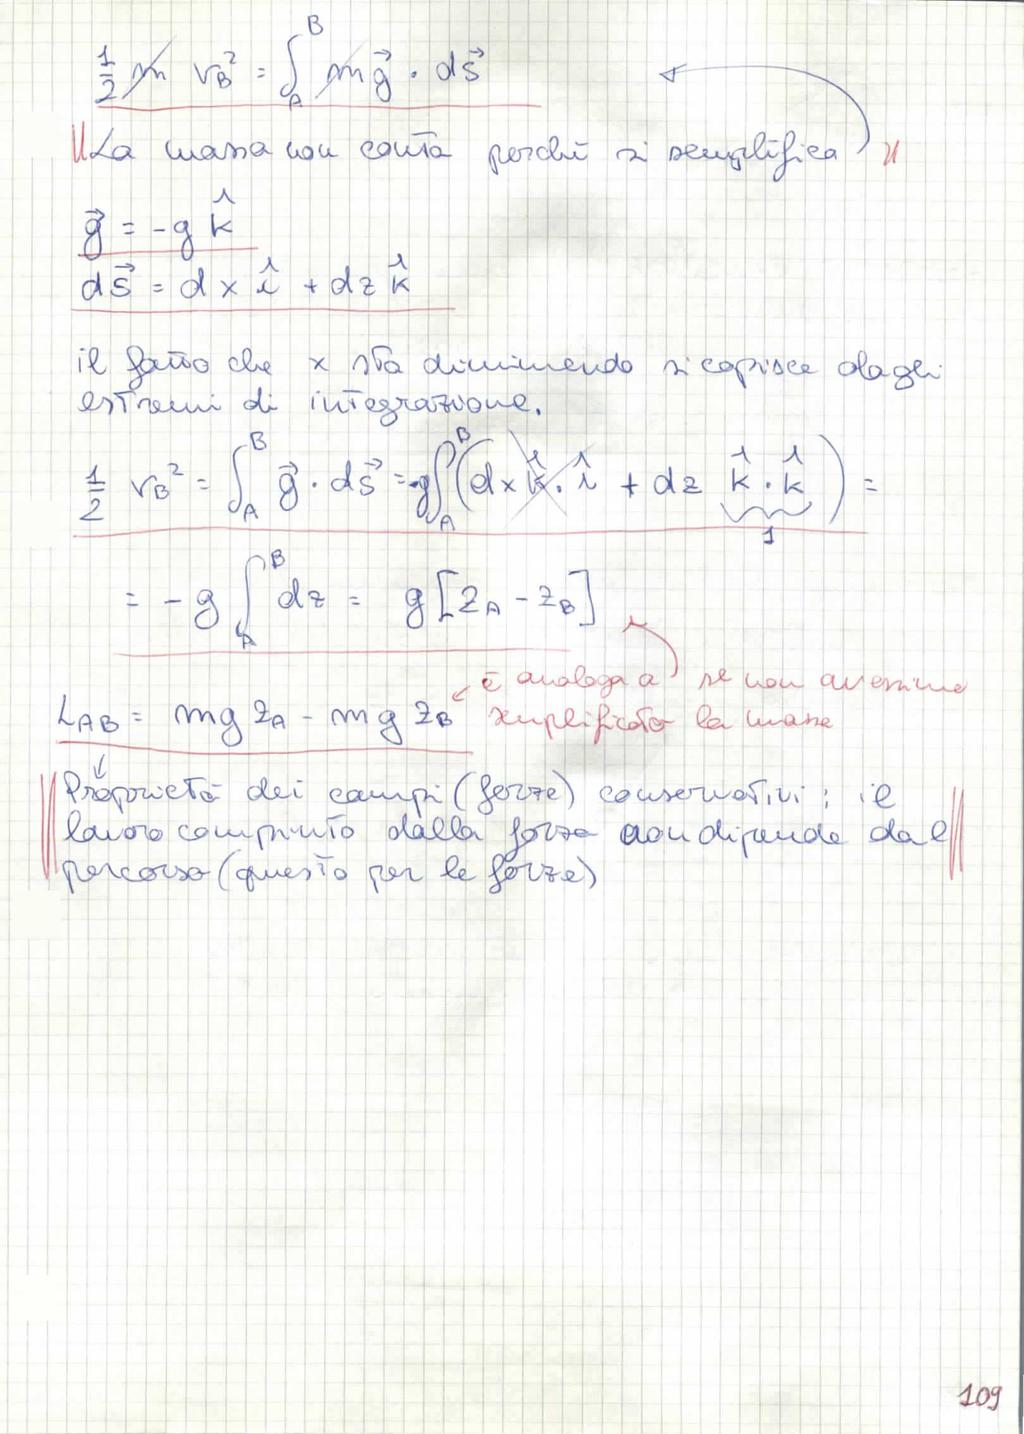 1/2 m v_B² = ∫_A^B m g⃗ · ds⃗
"La massa non conta perché si semplifica"
g⃗ = -g k̂
ds⃗ = dx î + dz k̂
il fatto che x sta diminuendo si capisce dagli
estremi di integrazione.
1/2 v_B² = ∫_A^B g⃗ · ds⃗ = -g ∫_A^B (dx k̂ · î + dz k̂ · k̂) =
1
= -g ∫_A^B dz = g [z_A - z_B]
è analoga a se non avessimo
L_AB = mg z_A - mg z_B semplificato la massa
Proprietà dei campi (forze) conservativi: il
lavoro compiuto dalla forza non dipende dal
percorso (questo per le forze)
109